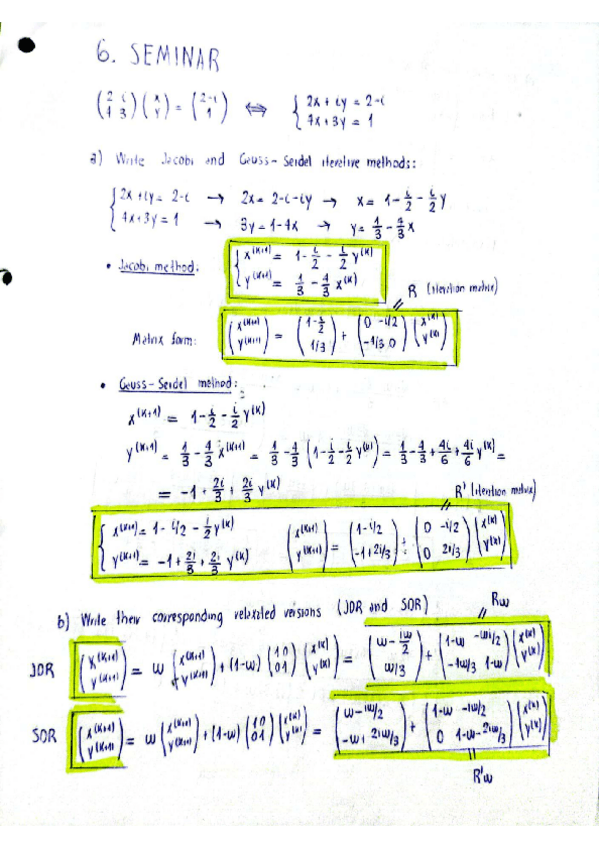 6. SEMINAR
(2 i / 4 3) (x / y) = (2-i / 1) ⟺ { 2x + iy = 2-i / 4x + 3y = 1
a) Write Jacobi and Gauss-Seidel iterative methods:
{ 2x + iy = 2-i → 2x = 2-i-iy → x = 1 - i/2 - i/2 y
4x + 3y = 1 → 3y = 1-4x → y = 1/3 - 4/3 x
• Jacobi method: { x^(k+1) = 1 - i/2 - i/2 y^(k)
y^(k+1) = 1/3 - 4/3 x^(k)
R (iteration matrix)
Matrix form: (x^(k+1) / y^(k+1)) = (1 - i/2 / 1/3) + (0 -i/2 / -4/3 0) (x^(k) / y^(k))
• Gauss-Seidel method:
x^(k+1) = 1 - i/2 - i/2 y^(k)
y^(k+1) = 1/3 - 4/3 x^(k+1) = 1/3 - 4/3 (1 - i/2 - i/2 y^(k)) = 1/3 - 4/3 + 4i/6 + 4i/6 y^(k) =
= -1 + 2i/3 + 2i/3 y^(k)
R' (iteration matrix)
{ x^(k+1) = 1 - i/2 - i/2 y^(k)
y^(k+1) = -1 + 2i/3 + 2i/3 y^(k)
(x^(k+1) / y^(k+1)) = (1 - i/2 / -1 + 2i/3) + (0 -i/2 / 0 2i/3) (x^(k) / y^(k))
b) Write their corresponding relaxated versions (JOR and SOR)
Rw
JOR (x^(k+1) / y^(k+1)) = w (x^(k+1) / y^(k+1)) + (1-w) (1 0 / 0 1) (x^(k) / y^(k)) = (w - iw/2 / w/3) + (1-w -wi/2 / -4w/3 1-w) (x^(k) / y^(k))
SOR (x^(k+1) / y^(k+1)) = w (x^(k+1) / y^(k+1)) + (1-w) (1 0 / 0 1) (x^(k) / y^(k)) = (w - iw/2 / -w + 2iw/3) + (1-w -iw/2 / 0 1-w-2iw/3) (x^(k) / y^(k))
R'w